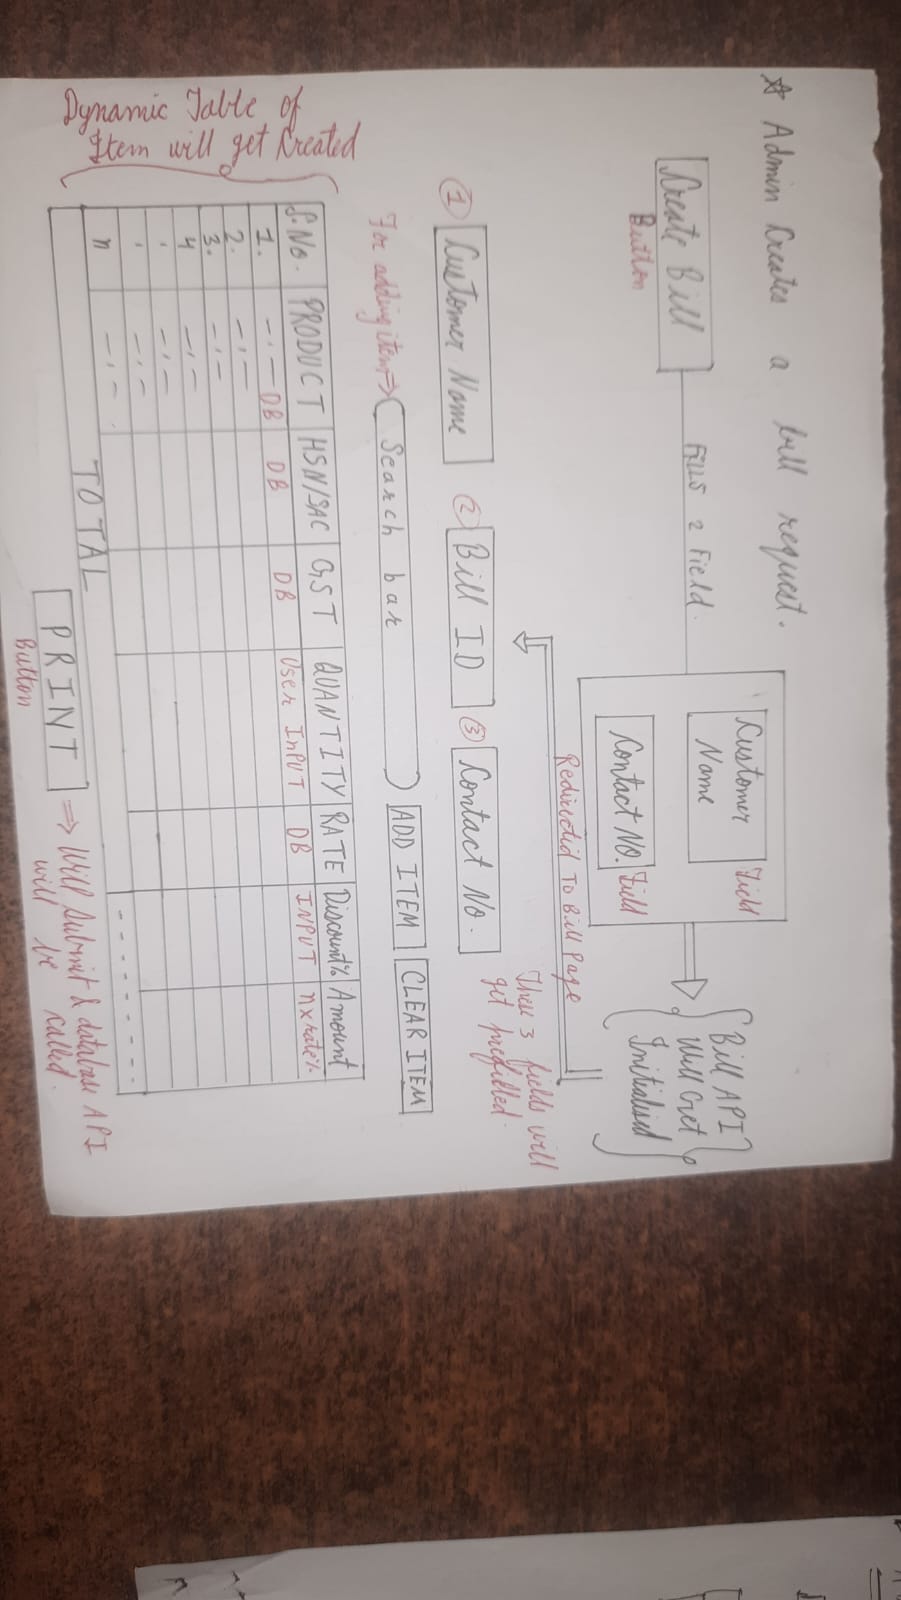 ☆ Admin Creates a bill request.
Create Bill
Button
Fills 2 Field.
Customer
Name
Field
Contact No.
Field
Bill API
Will Get
Initialised
Redirected To Bill Page
These 3 fields will
get prefilled.
① Customer Name ② Bill ID ③ Contact No.
For adding item⇒ Search bar ADD ITEM CLEAR ITEM
Dynamic Table of
Item will get Created
S.No. PRODUCT HSN/SAC GST QUANTITY RATE Discount% Amount
1. DB DB DB User InPUT DB INPUT n x rate%
2.
3.
4
n
TOTAL
PRINT ⇒ Will Submit & database API
will be called.
Button